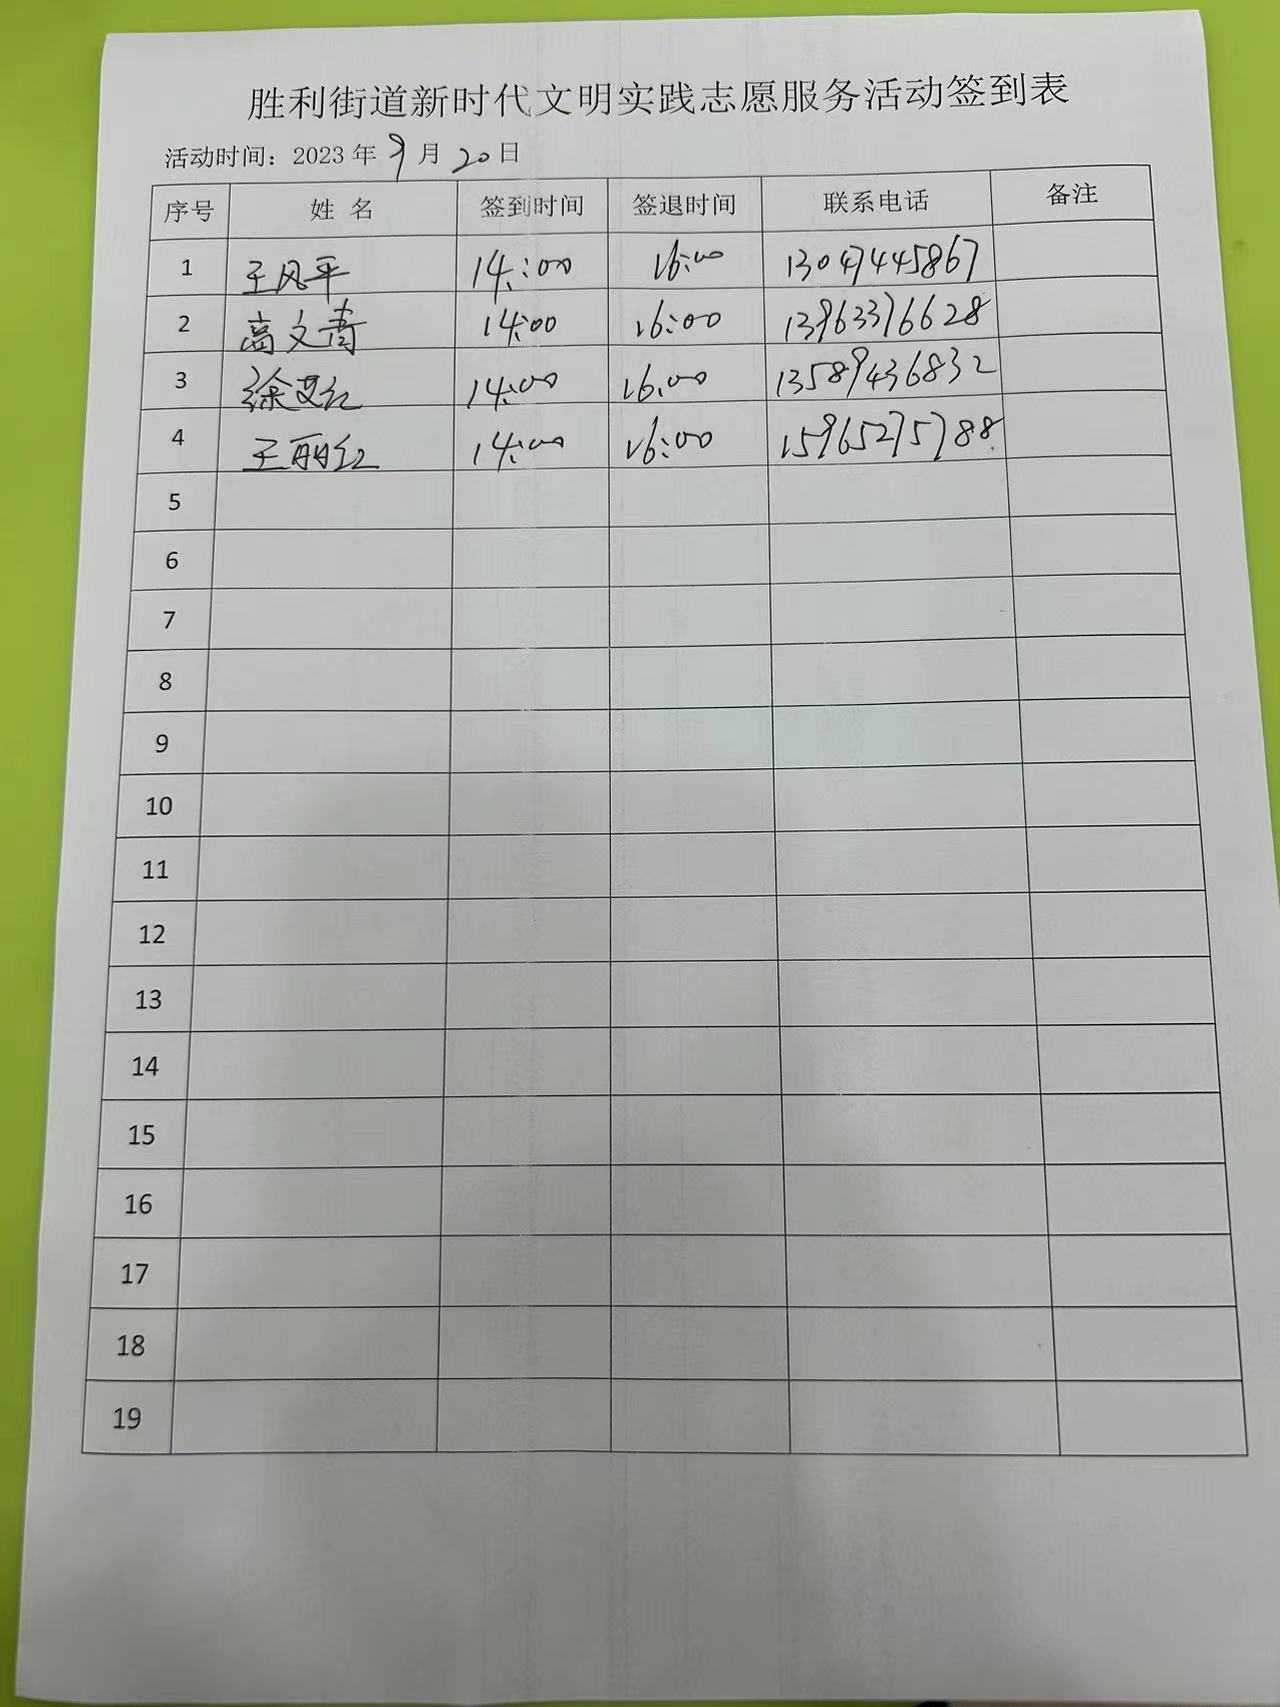 胜利街道新时代文明实践志愿服务活动签到表
活动时间：2023 年 9 月 20 日
序号 姓 名 签到时间 签退时间 联系电话 备注
1 王风平 14:00 16:00 13047445867
2 高文青 14:00 16:00 13963376628
3 徐艾红 14:00 16:00 13589436832
4 王丽红 14:00 16:00 15965275788
5
6
7
8
9
10
11
12
13
14
15
16
17
18
19